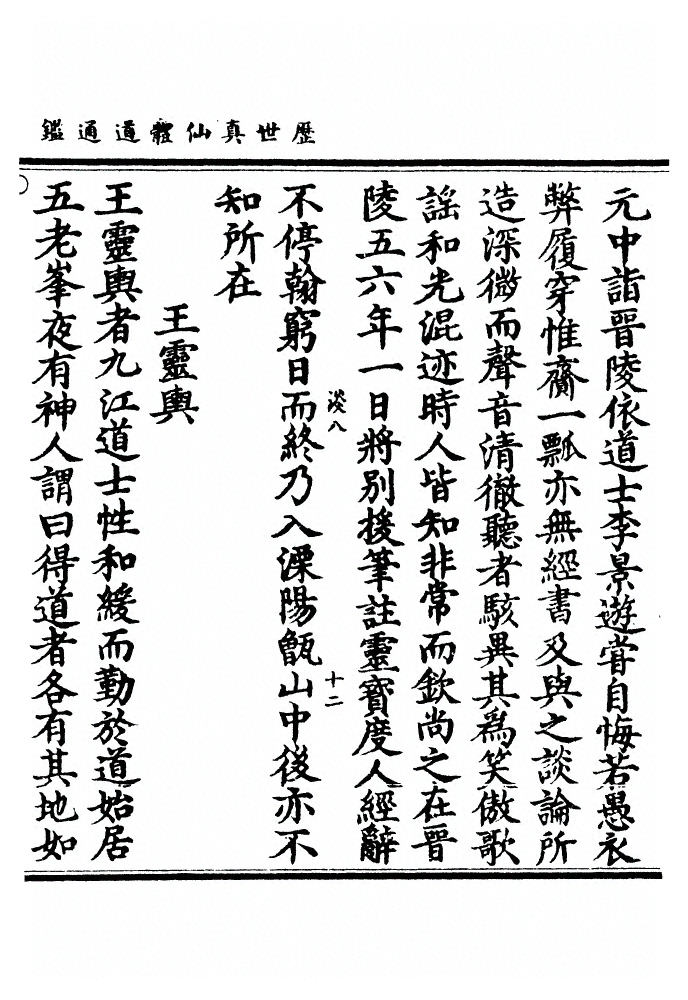 歷世真仙體道通鑑
元中詣晉陵依道士李景遊甞自悔若愚衣
弊履穿惟齎一瓢亦無經書及與之談論所
造深微而聲音清徹聽者駭異其為笑傲歌
謠和光混迹時人皆知非常而欽尚之在晉
陵五六年一日將別援筆註靈寶度人經辭
不停翰窮日而終乃入溧陽甑山中後亦不
淡八
十二
知所在
王靈輿
王靈輿者九江道士性和緩而勤於道始居
五老峯夜有神人謂曰得道者各有其地如